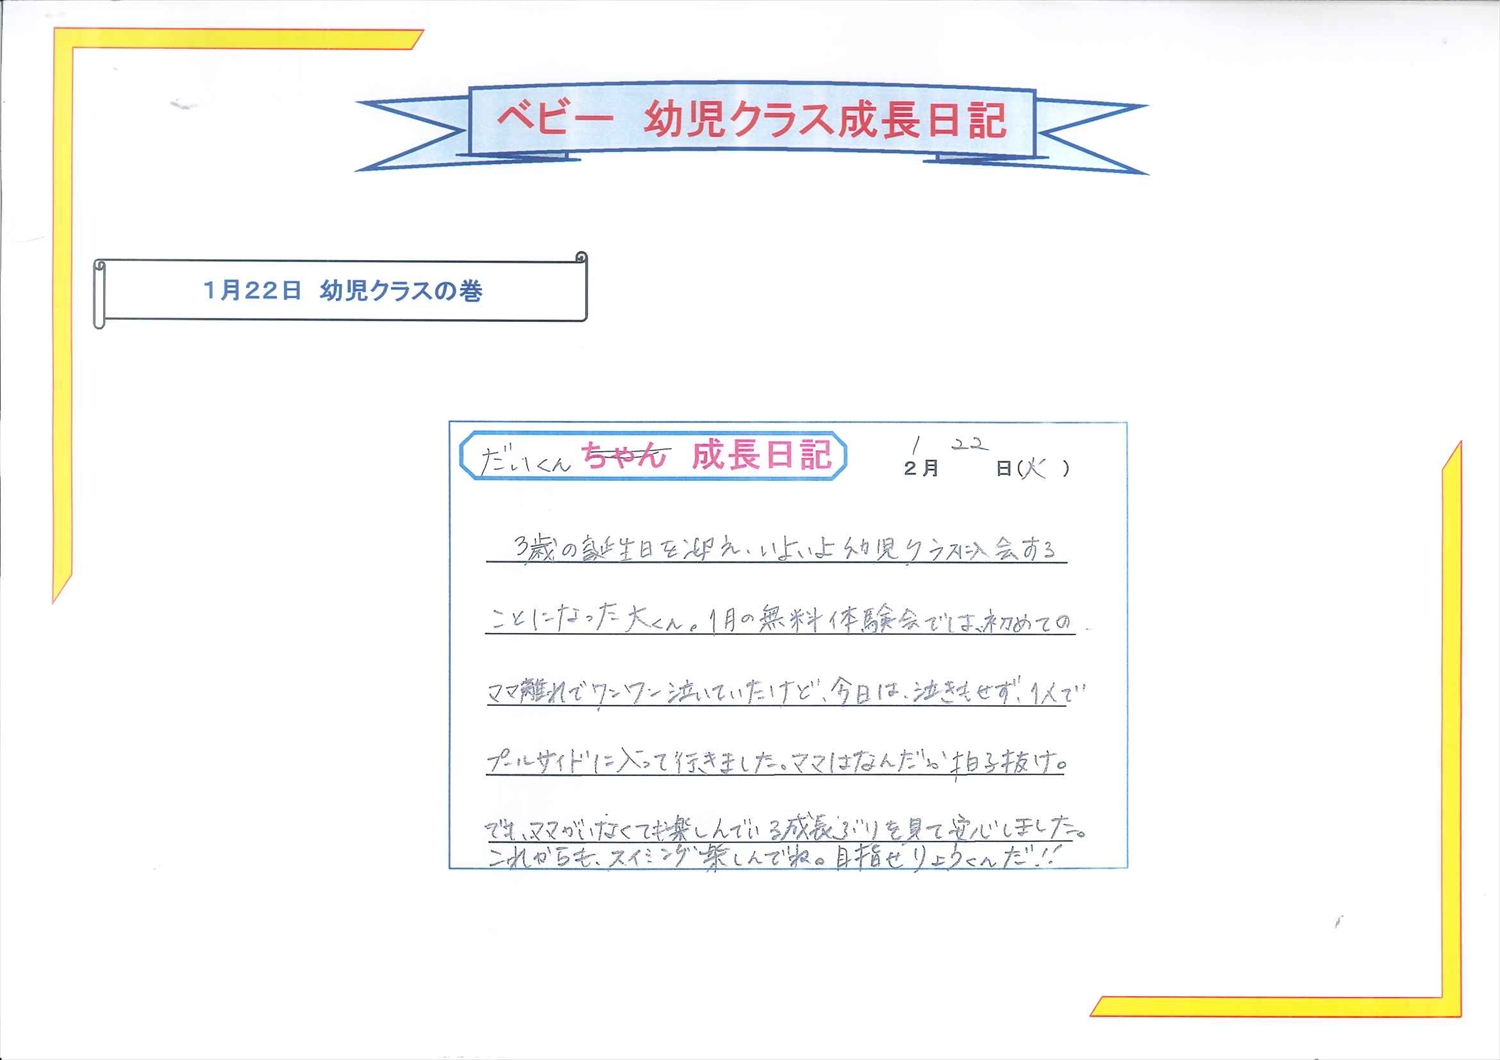 ベビー　幼児クラス成長日記
1月22日　幼児クラスの巻
だいくん ちゃん 成長日記
1 22
2月 日(火)
3歳の誕生日を迎え、いよいよ幼児クラスに入会する
ことになった大くん。1月の無料体験会では、初めての
ママ離れでワンワン泣いていたけど、今日は、泣きもせず、1人で
プールサイドに入って行きました。ママはなんだか拍子抜け。
でも、ママがいなくても楽しんでいる成長ぶりを見て安心しました。
これからも、スイミング楽しんでね。目指せりょうくんだ!!